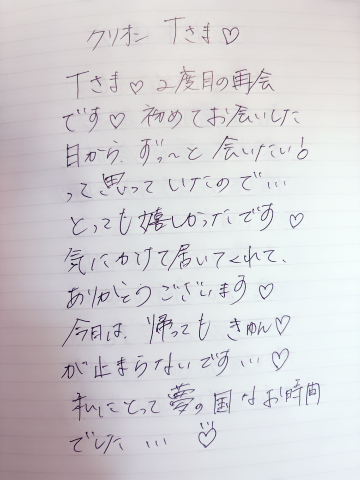 クリオン Tさま♡
Tさま♡ 2度目の再会
です♡ 初めてお会いした
日から、ずっ〜と 会いたい!
って思って いたので…
とっても嬉しかったです♡
気にかけて居いてくれて、
ありがとうございます♡
今日は、帰っても きゅん♡
が止まらないです…♡
私にとって 夢の国なお時間
でした…♡